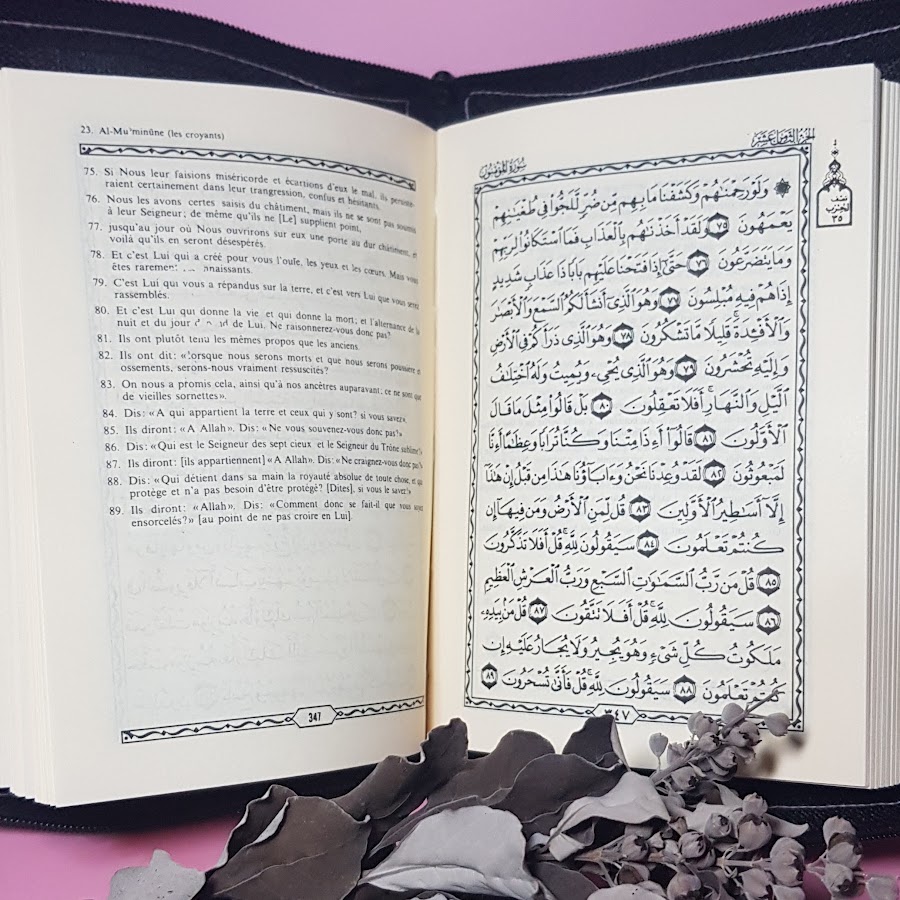 23. Al-Mu'minûne (les croyants)
75. Si Nous leur faisions miséricorde et écartions d'eux le mal, ils
raient certainement dans leur trangression, confus et hésitants.
76. Nous les avons certes saisis du châtiment, mais ils ne se sont pas soumis
à leur Seigneur; de même qu'ils ne [Le] supplient point,
77. jusqu'au jour où Nous ouvrirons sur eux une porte au dur châtiment, et
voilà qu'ils en seront désespérés.
78. Et c'est Lui qui a créé pour vous l'ouïe, les yeux et les cœurs. Mais vous
êtes rarement naissants.
79. C'est Lui qui vous a répandus sur la terre, et c'est vers Lui que vous serez
rassemblés.
80. Et c'est Lui qui donne la vie et qui donne la mort; et l'alternance de la
nuit et du jour de Lui. Ne raisonnerez-vous donc pas?
81. Ils ont plutôt tenu les mêmes propos que les anciens.
82. Ils ont dit: «lorsque nous serons morts et que nous serons poussière et
ossements, serons-nous vraiment ressuscités?
83. On nous a promis cela, ainsi qu'à nos ancêtres auparavant; ce ne sont que
de vieilles sornettes».
84. Dis: «A qui appartient la terre et ceux qui y sont? si vous savez».
85. Ils diront: «A Allah». Dis: «Ne vous souvenez-vous donc pas?»
86. Dis: «Qui est le Seigneur des sept cieux et le Seigneur du Trône sublime?»
87. Ils diront: [ils appartiennent] «A Allah». Dis: «Ne craignez-vous donc pas?»
88. Dis: «Qui détient dans sa main la royauté absolue de toute chose, et qui
protège et n'a pas besoin d'être protégé? [Dites], si vous le savez!»
89. Ils diront: «Allah». Dis: «Comment donc se fait-il que vous soyez
ensorcelés?» [au point de ne pas croire en Lui].
347
سُورَةُ المُؤْمِنُون
الجزء الثامن عشر
نصف
الحزب
٣٥
۞ وَلَوْ رَحِمْنَٰهُمْ وَكَشَفْنَا مَا بِهِم مِّن ضُرٍّ لَّلَجُّوا۟ فِى طُغْيَٰنِهِمْ
يَعْمَهُونَ ٧٥ وَلَقَدْ أَخَذْنَٰهُم بِٱلْعَذَابِ فَمَا ٱسْتَكَانُوا۟ لِرَبِّهِمْ
وَمَا يَتَضَرَّعُونَ ٧٦ حَتَّىٰٓ إِذَا فَتَحْنَا عَلَيْهِم بَابًا ذَا عَذَابٍ شَدِيدٍ
إِذَا هُمْ فِيهِ مُبْلِسُونَ ٧٧ وَهُوَ ٱلَّذِىٓ أَنشَأَ لَكُمُ ٱلسَّمْعَ وَٱلْأَبْصَٰرَ
وَٱلْأَفْـِٔدَةَ ۚ قَلِيلًا مَّا تَشْكُرُونَ ٧٨ وَهُوَ ٱلَّذِى ذَرَأَكُمْ فِى ٱلْأَرْضِ
وَإِلَيْهِ تُحْشَرُونَ ٧٩ وَهُوَ ٱلَّذِى يُحْىِۦ وَيُمِيتُ وَلَهُ ٱخْتِلَٰفُ
ٱلَّيْلِ وَٱلنَّهَارِ ۚ أَفَلَا تَعْقِلُونَ ٨٠ بَلْ قَالُوا۟ مِثْلَ مَا قَالَ
ٱلْأَوَّلُونَ ٨١ قَالُوٓا۟ أَءِذَا مِتْنَا وَكُنَّا تُرَابًا وَعِظَٰمًا أَءِنَّا
لَمَبْعُوثُونَ ٨٢ لَقَدْ وُعِدْنَا نَحْنُ وَءَابَآؤُنَا هَٰذَا مِن قَبْلُ إِنْ هَٰذَآ
إِلَّآ أَسَٰطِيرُ ٱلْأَوَّلِينَ ٨٣ قُل لِّمَنِ ٱلْأَرْضُ وَمَن فِيهَآ إِن
كُنتُمْ تَعْلَمُونَ ٨٤ سَيَقُولُونَ لِلَّهِ ۚ قُلْ أَفَلَا تَذَكَّرُونَ
٨٥ قُلْ مَن رَّبُّ ٱلسَّمَٰوَٰتِ ٱلسَّبْعِ وَرَبُّ ٱلْعَرْشِ ٱلْعَظِيمِ
٨٦ سَيَقُولُونَ لِلَّهِ ۚ قُلْ أَفَلَا تَتَّقُونَ ٨٧ قُلْ مَنۢ بِيَدِهِۦ
مَلَكُوتُ كُلِّ شَىْءٍ وَهُوَ يُجِيرُ وَلَا يُجَارُ عَلَيْهِ إِن
كُنتُمْ تَعْلَمُونَ ٨٨ سَيَقُولُونَ لِلَّهِ ۚ قُلْ فَأَنَّىٰ تُسْحَرُونَ ٨٩
٣٤٧